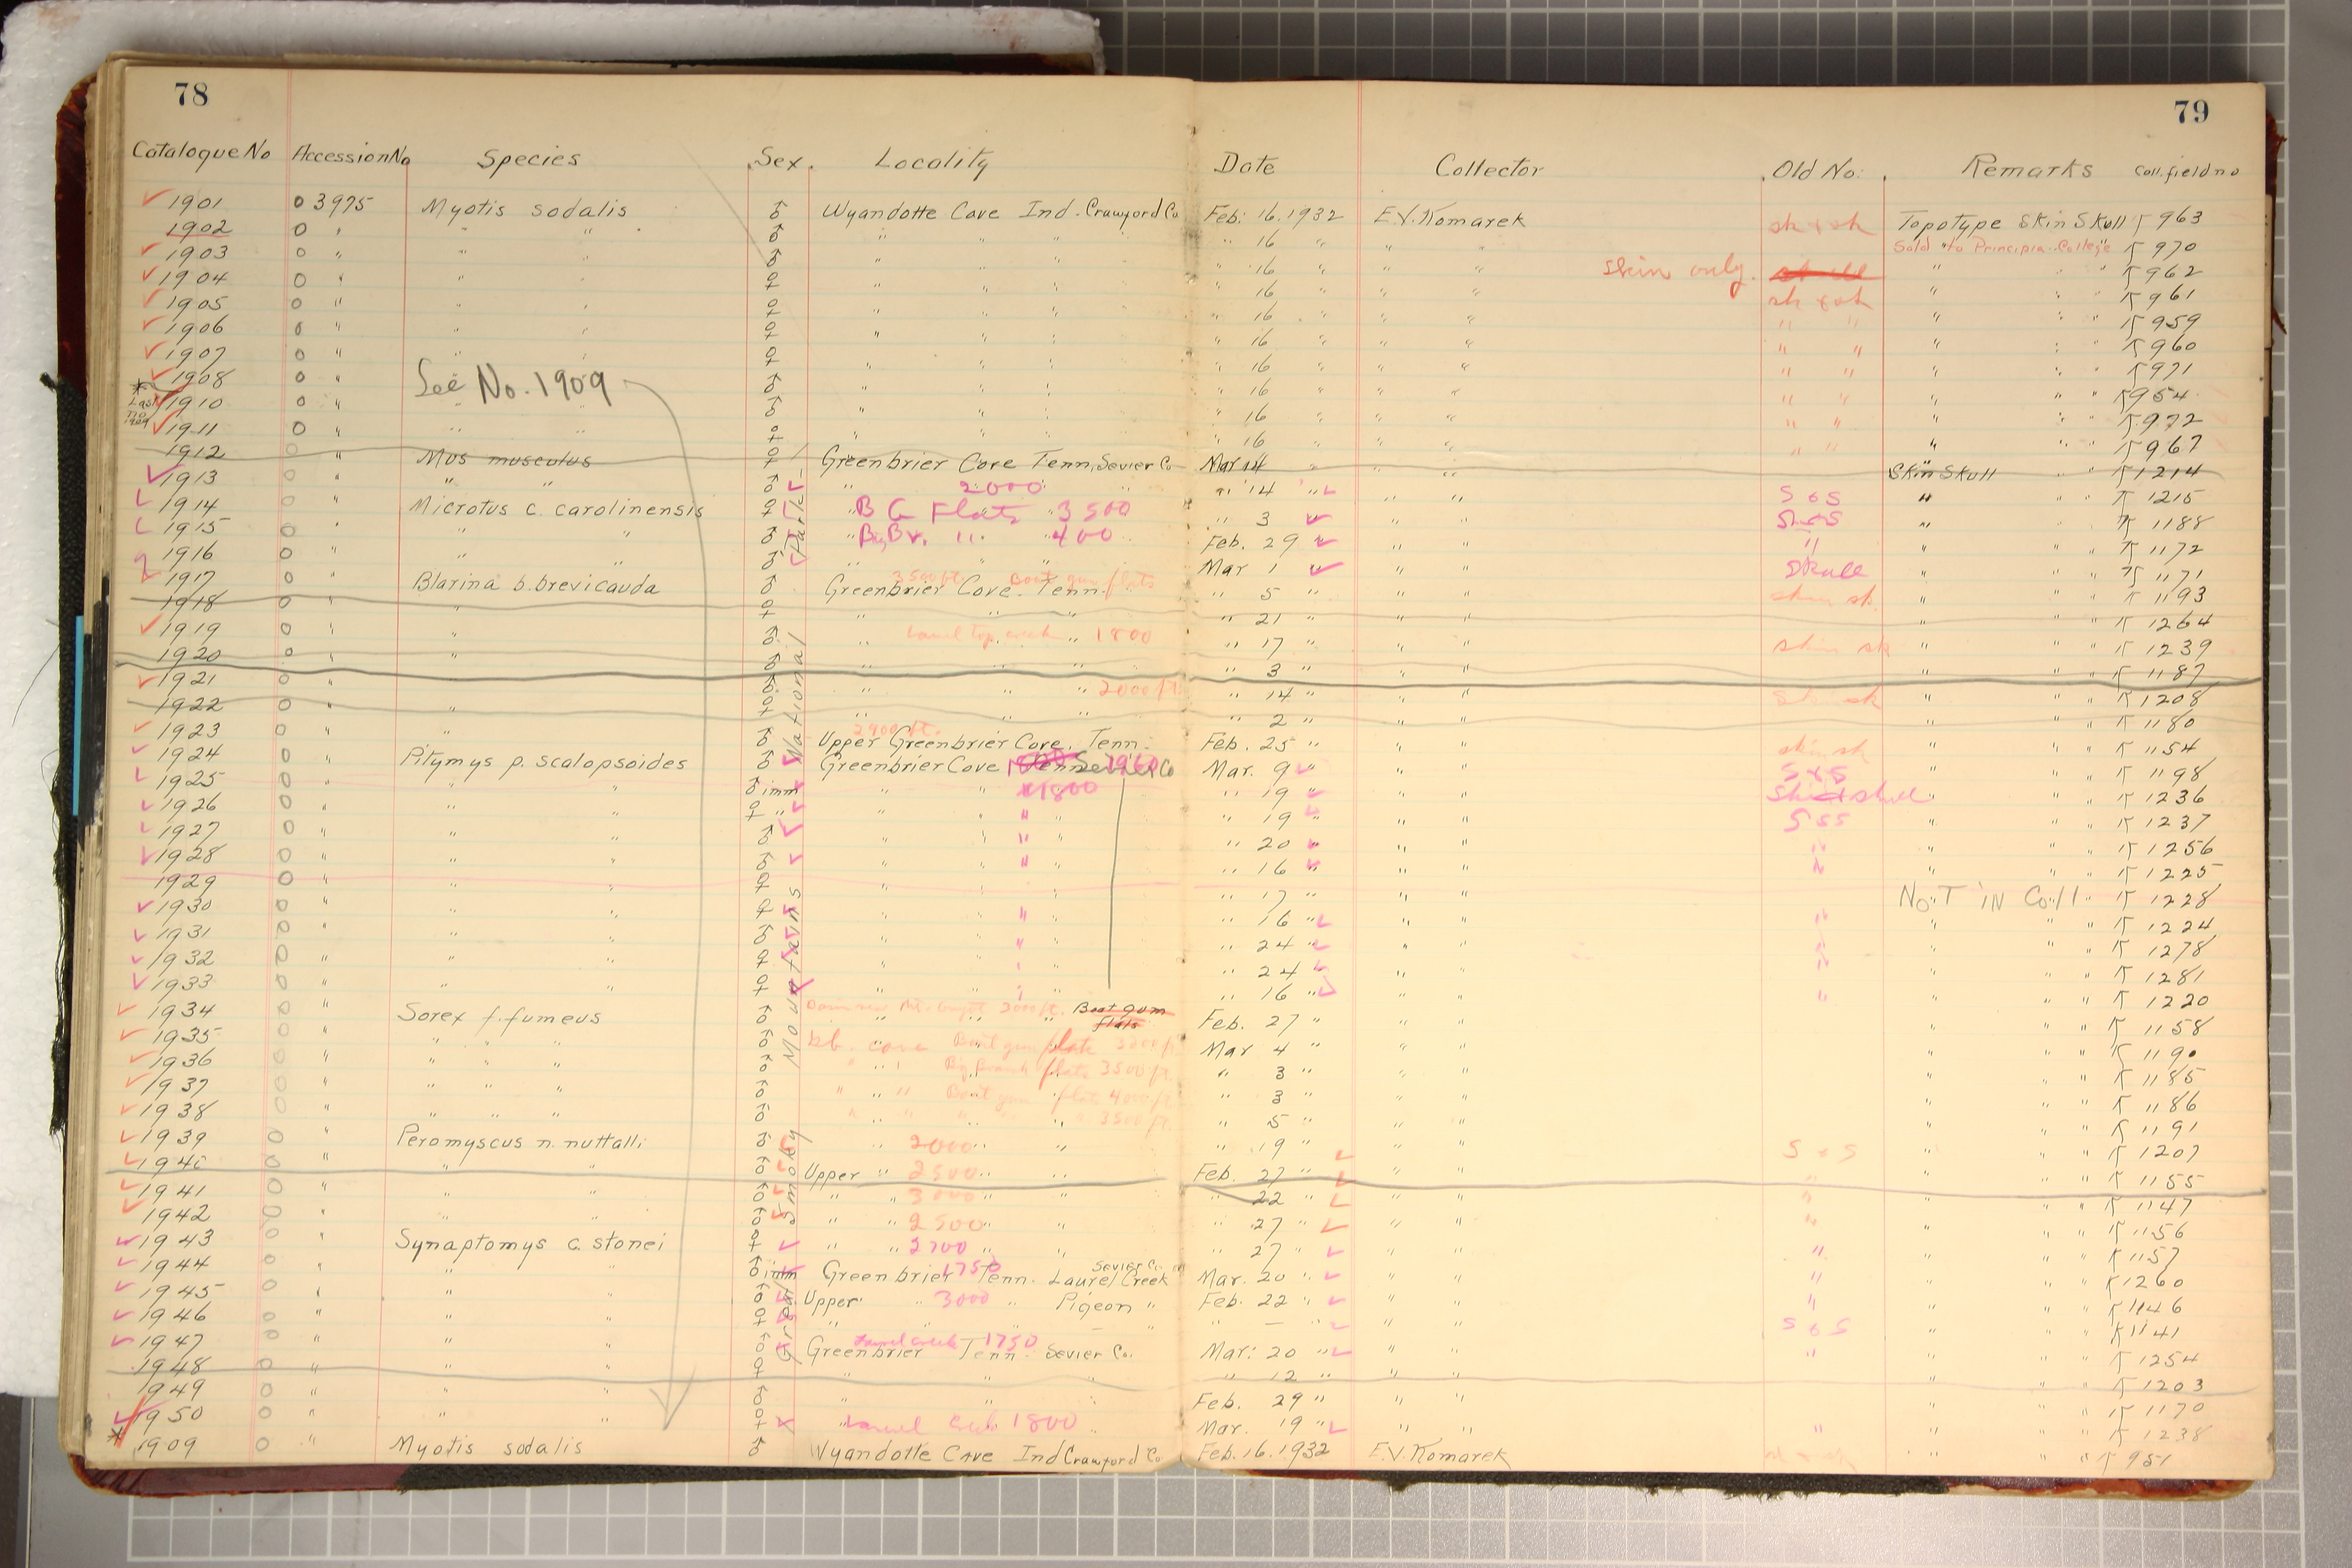 78
79
Catalogue No Accession No Species Sex. Locality Date Collector Old No. Remarks Coll. field no
1901 0 3975 Myotis sodalis ♂ Wyandotte Cave Ind. Crawford Co Feb. 16. 1932 E.V. Komarek sk + sk Topotype Skin Skull K 963
1902 0 " " " ♂ " " " " 16 " " " Sold to Principia College K 970
1903 0 " " " ♂ " " " " 16 " " " skin only. " " " K 962
1904 0 " " " ♀ " " " " 16 " " " sk + sk " " " K 961
1905 0 " " " ♀ " " " " 16 " " " " " " " " K 959
1906 0 " " " ♀ " " " " 16 " " " " " " " " K 960
1907 0 " " " ♀ " " " " 16 " " " " " " " " K 971
1908 0 " See No. 1909 ♂ " " " " 16 " " " " " " " " K 954
* Last no 1909
1910 0 " " " ♂ " " " " 16 " " " " " " " " K 972
1911 0 " " " ♀ " " " " 16 " " " " " " " " K 967
1912 0 " Mus musculus ♀ Greenbrier Cove Tenn. Sevier Co Mar 14 " " " Skin Skull K 1214
1913 0 " " " ♂ " 2000 " 14 " " " S & S " " " K 1215
1914 0 " Microtus c. carolinensis ♀ " B G Flats 3500 " 3 " " " " " " K 1188
1915 0 " " " ♂ " Big Br. " 400 Feb. 29 " " " " " " " K 1172
1916 0 " " " ♂ " " " Mar 1 " " " Skull " " " K 1171
1917 0 " Blarina b. brevicauda ♂ Greenbrier Cove. Tenn. 3500 ft. Boat gum flats " 5 " " " skin sk. " " " K 1193
1918 0 " " ♀ " " " " 21 " " " " " " K 1264
1919 0 " " ♂ " Laurel top creek " 1800 " 17 " " " skin sk " " " K 1239
1920 0 " " ♂ " " " " 3 " " " " " " K 1187
1921 0 " " ♂ " " " 2000 ft. " 14 " " " " " " K 1208
1922 0 " " ♀ " " " " 2 " " " " " " K 1180
1923 0 " " ♂ 2900 ft. Upper Greenbrier Cove, Tenn. Feb. 25 " " " skin sk " " " K 1154
1924 0 " Pitymys p. scalopsoides ♂ Greenbrier Cove Sevier Co Mar. 9 " " " S & S " " " K 1198
1925 0 " " " ♂ imm " " 1800 " 19 " " " " " " K 1236
1926 0 " " " ♀ " " " " " " 19 " " " S & S " " " K 1237
1927 0 " " " ♂ " " " " " 20 " " " " " " " K 1256
1928 0 " " " ♂ " " " " " 16 " " " " " " " K 1225
1929 0 " " " ♀ " " " " 17 " " " NOT IN Coll. K 1228
1930 0 " " " ♀ " " " " " 16 " " " " " " " K 1224
1931 0 " " " ♂ " " " " " 24 " " " " " " " K 1278
1932 0 " " " ♀ " " " " " 24 " " " " " " " K 1281
1933 0 " " " ♀ " " " " " 16 " " " " " " " K 1220
1934 0 " Sorex f. fumeus ♂ Boat gum flats Feb. 27 " " " " " " K 1158
1935 0 " " " " ♂ Gb. cove Boat gum flats Mar 4 " " " " " " K 1190
1936 0 " " " " ♂ " " Big Branch flats 3500 ft. " 3 " " " " " " K 1185
1937 0 " " " " ♂ " " Boat gum flats 4000 ft. " 3 " " " " " " K 1186
1938 0 " " " " ♂ " " " " 3500 ft. " 5 " " " " " " K 1191
1939 0 " Peromyscus n. nuttalli ♂ " 2000 " " " 19 " " " S & S " " " K 1207
1940 0 " " " ♂ Upper " 2500 " " Feb. 27 " " " " " " " K 1155
1941 0 " " " ♂ " " 3000 " " " 22 " " " " " " " K 1147
1942 0 " " " ♂ " " 2500 " " " 27 " " " " " " " K 1156
1943 0 " Synaptomys c. stonei ♀ " " 2700 " " 27 " " " " " " " K 1157
1944 0 " " " ♂ imm Greenbrier 1750 Tenn. Laurel Creek Sevier Co. Mar. 20 " " " " " " " K 1260
1945 0 " " " ♂ Upper " 3000 " Pigeon " Feb. 22 " " " " " " " K 1146
1946 0 " " " ♀ " " " — " " — " " " S & S " " " K 1141
1947 0 " " " ♂ Greenbrier Laurel creek 1750 Tenn. Sevier Co. Mar. 20 " " " " " " " K 1254
1948 0 " " " ♀ " " " " 12 " " " " " " K 1203
1949 0 " " " ♂ " " " Feb. 29 " " " " " " K 1170
1950 0 " " " ♀ " Laurel Crk 1800 " Mar. 19 " " " " " " " K 1238
* 1909 0 " Myotis sodalis ♂ Wyandotte Cave Ind Crawford Co. Feb. 16. 1932 E.V. Komarek " " " K 951
Great Smoky Mountains National Park